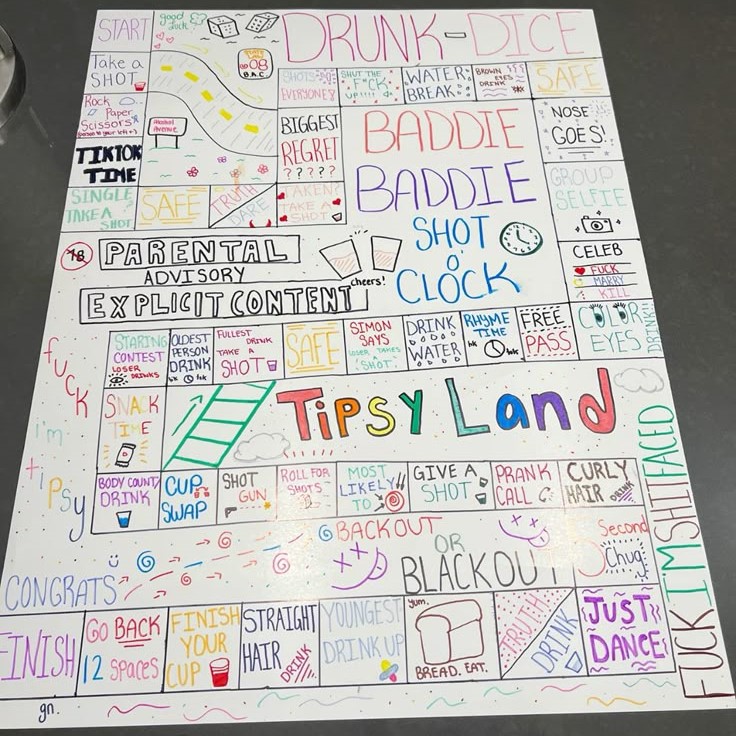 START
good luck!
DRUNK-DICE
Take a
SHOT
08
B.A.C.
SHOTS
EVERYONE!
SHUT THE
F*CK
UP!!!!
WATER
BREAK
BROWN
EYES
DRINK
SAFE
Rock
Paper
Scissors
Alcohol
Avenue
BIGGEST
REGRET
?????
BADDIE
BADDIE
NOSE
GOES!
TIKTOK
TIME
SINGLE
TAKE A
SHOT
SAFE
TRUTH
DARE
TAKEN?
TAKE A
SHOT
GROUP
SELFIE
SHOT
O'
CLOCK
18
PARENTAL
ADVISORY
EXPLICIT CONTENT
cheers!
CELEB
FUCK
MARRY
KILL
STARING
CONTEST
LOSER
DRINKS
OLDEST
PERSON
DRINK
FULLEST
DRINK
TAKE A
SHOT
SAFE
SIMON
SAYS
LOSER TAKES
SHOT
DRINK
WATER
RHYME
TIME
FREE
PASS
COLOR
EYES
DRINK!!
fuck
i'm
tipsy
SNACK
TIME
TIPSY LAND
BODY COUNT
DRINK
CUP
SWAP
SHOT
GUN
ROLL FOR
SHOTS
MOST
LIKELY
TO
GIVE A
SHOT
PRANK
CALL
CURLY
HAIR
DRINK
FUCK I'M SHITFACED
BACKOUT
OR
BLACKOUT
5 Second
Chug
CONGRATS
FINISH
GO BACK
12 SPACES
FINISH
YOUR
CUP
STRAIGHT
HAIR
DRINK
YOUNGEST
DRINK UP
yum.
BREAD. EAT.
TRUTH
DRINK
JUST
DANCE
gn.